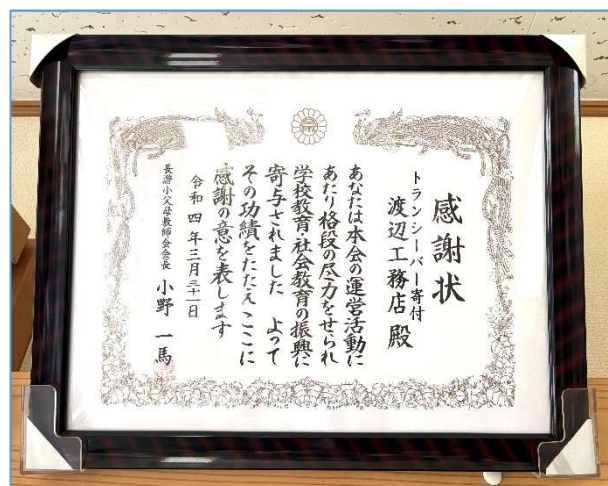 感謝状
トランシーバー寄付
渡辺工務店 殿
あなたは本会の運営活動に
あたり格段の尽力をせられ
学校教育・社会教育の振興に
寄与されました よって
その功績をたたえここに
感謝の意を表します
令和四年三月三十一日
長游小父母教師会会長 小野 一馬